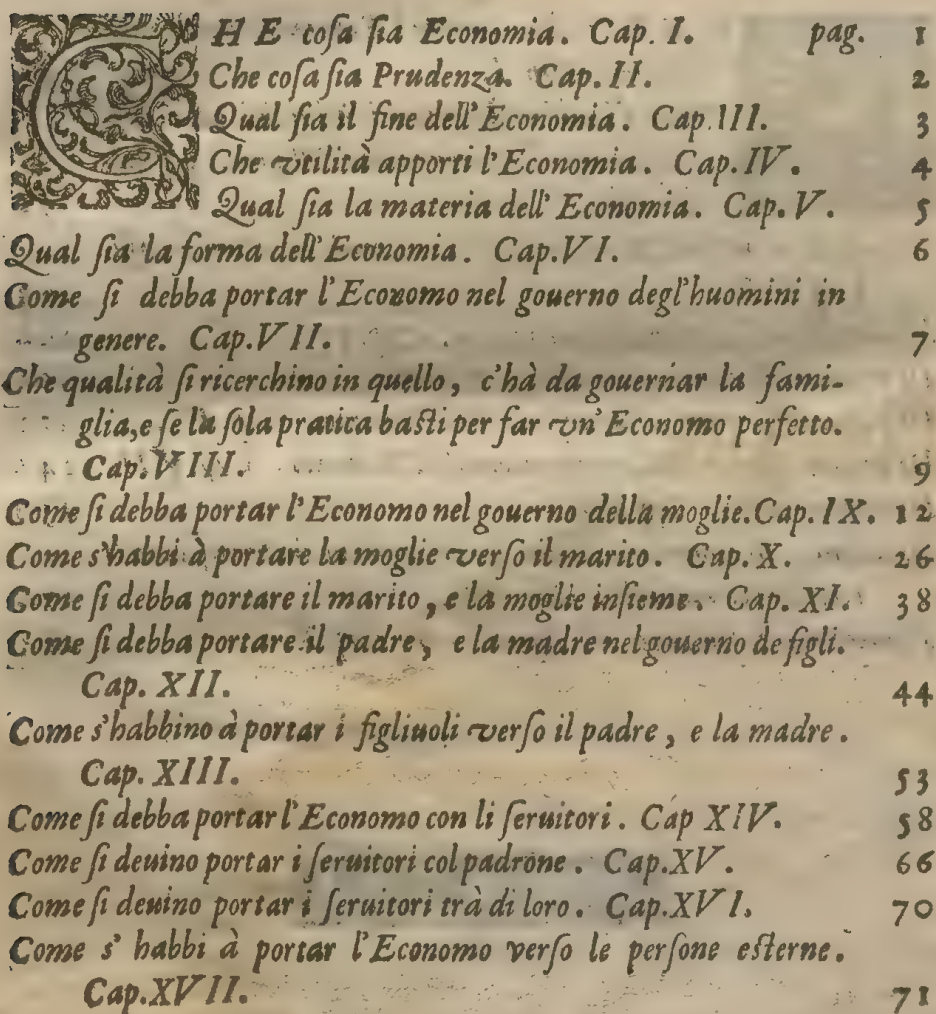 CHE coſa ſia Economia. Cap. I. pag. 1
Che coſa ſia Prudenza. Cap. II. 2
Qual ſia il fine dell'Economia. Cap. III. 3
Che vtilità apporti l'Economia. Cap. IV. 4
Qual ſia la materia dell'Economia. Cap. V. 5
Qual ſia la forma dell'Economia. Cap. VI. 6
Come ſi debba portar l'Economo nel gouerno degl'huomini in
genere. Cap. VII. 7
Che qualità ſi ricerchino in quello, c'hà da gouernar la fami-
glia, e ſe la ſola pratica baſti per far vn'Economo perfetto.
Cap. VIII. 9
Come ſi debba portar l'Economo nel gouerno della moglie. Cap. IX. 12
Come s'habbi à portare la moglie verſo il marito. Cap. X. 26
Come ſi debba portare il marito, e la moglie inſieme. Cap. XI. 38
Come ſi debba portare il padre, e la madre nel gouerno de figli.
Cap. XII. 44
Come s'habbino à portar i figliuoli verſo il padre, e la madre.
Cap. XIII. 53
Come ſi debba portar l'Economo con li ſeruitori. Cap XIV. 58
Come ſi deuino portar i ſeruitori col padrone. Cap. XV. 66
Come ſi deuino portar i ſeruitori trà di loro. Cap. XVI. 70
Come s' habbi à portar l'Economo verſo le perſone eſterne.
Cap. XVII. 71